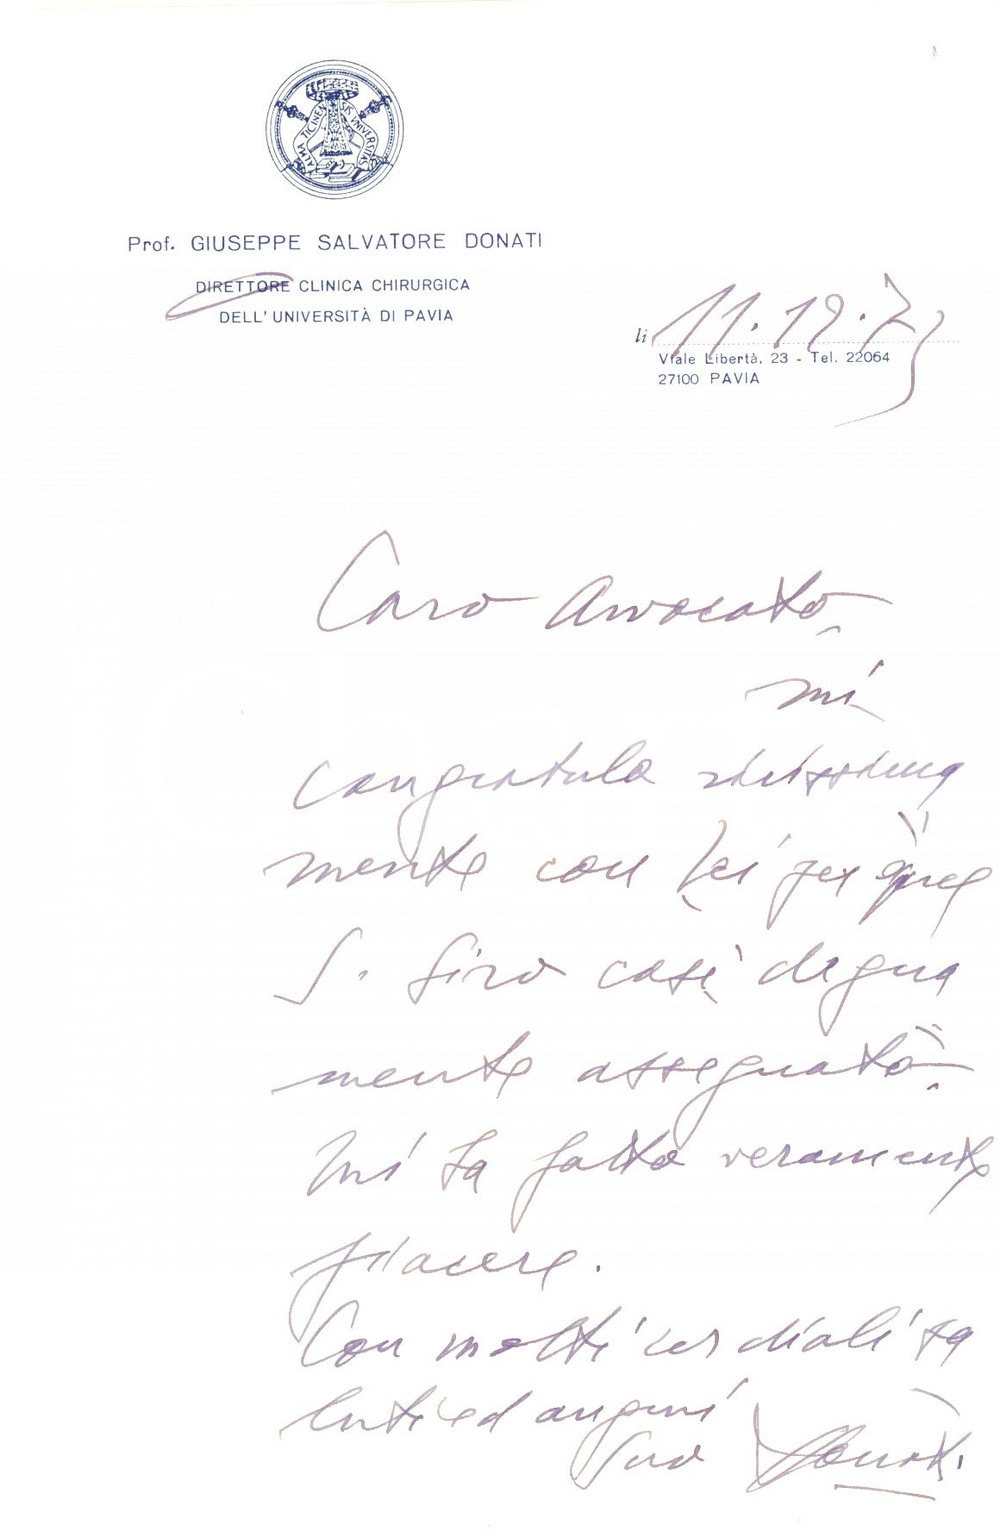 ALMA TICINENSIS UNIVERSITAS
Prof. GIUSEPPE SALVATORE DONATI
DIRETTORE CLINICA CHIRURGICA
DELL' UNIVERSITÀ DI PAVIA
li 11.12.73
Viale Libertà, 23 - Tel. 22064
27100 PAVIA
Caro Avvocato,
mi
congratulo vivissima
mente con Lei per quel
S. Siro così degna
mente assegnato.
Mi fa fatto veramente
piacere.
Con molti cordiali sa
luti ed auguri
Suo Donati